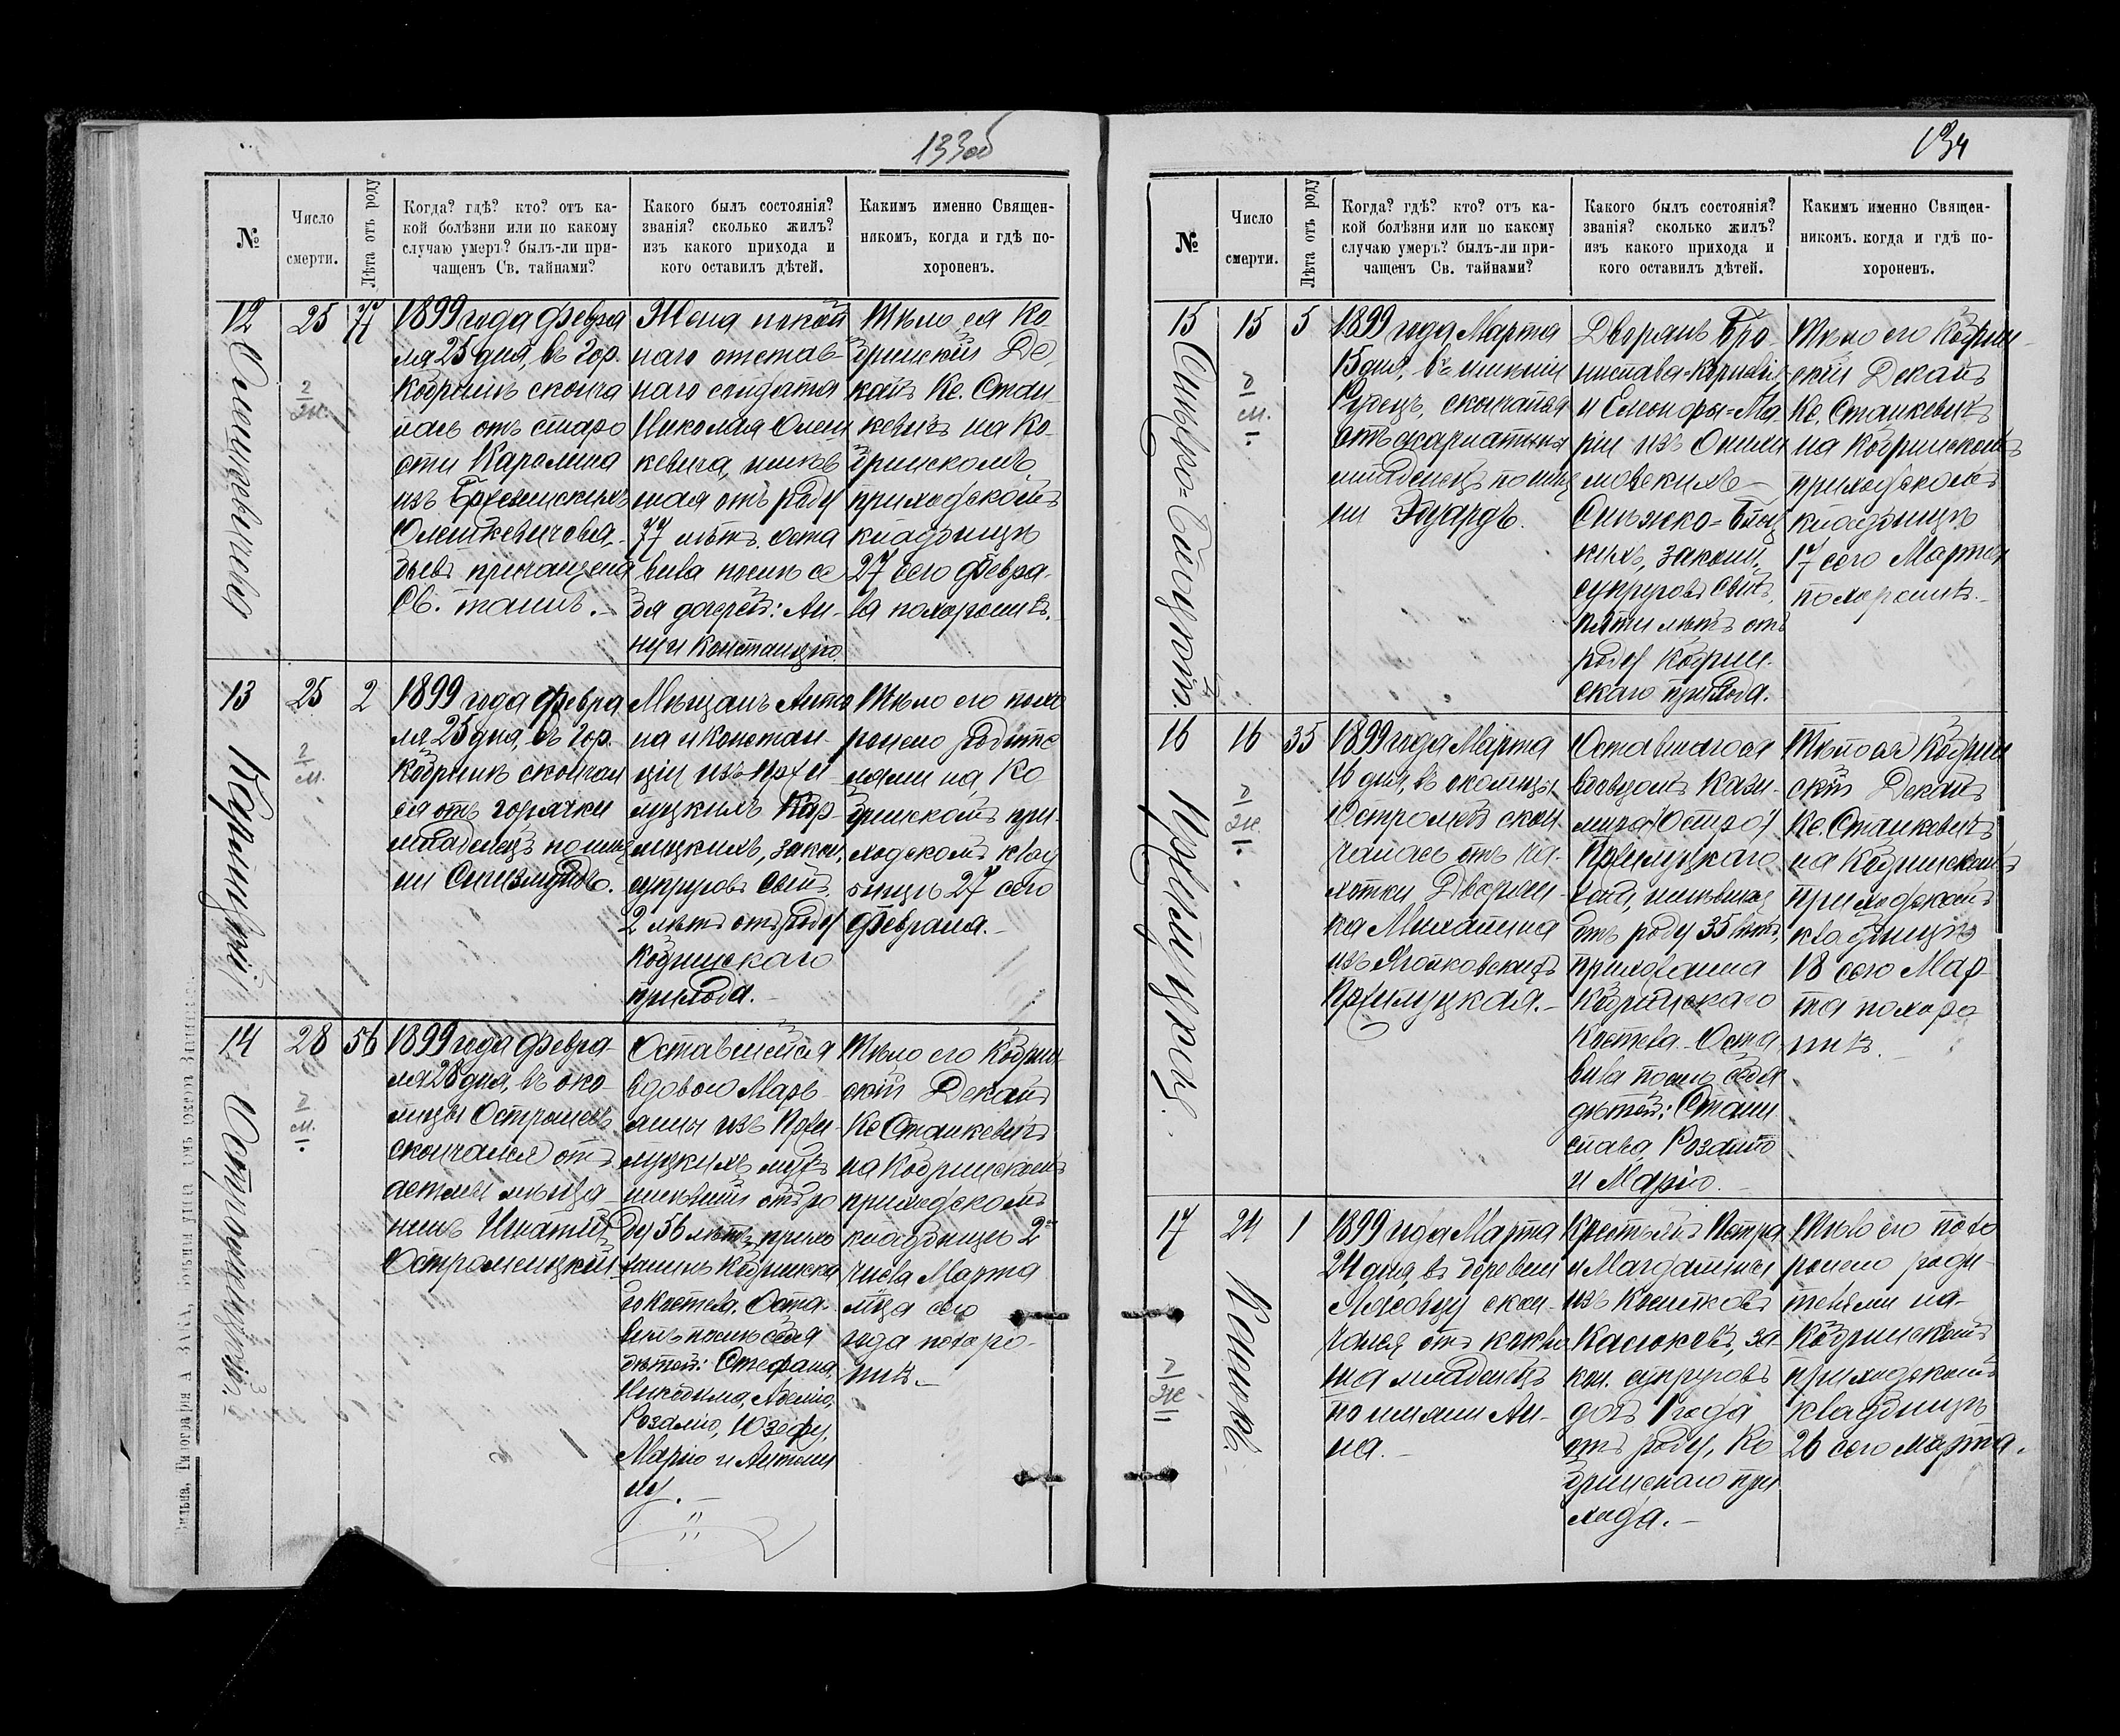 133об
№
Число
смерти.
Лѣта отъ роду
Когда? гдѣ? кто? отъ ка-
кой болѣзни или по какому
случаю умеръ? былъ-ли при-
чащенъ Св. тайнами?
Какого былъ состоянія?
званія? сколько жилъ?
изъ какого прихода и
кого оставилъ дѣтей.
Какимъ именно Священ-
никомъ, когда и гдѣ по-
хороненъ.
12
25
77
2
Ж.
1899 года Февра
ля 25 дня, въ гор.
Кобринѣ сконча
лась отъ старо
сти Каролина
изъ
Олешкевичева,
бывъ причащена
Св. таинъ.
Жена покой
наго отстав-
наго солдата
Николая Олеш
кевича, имѣв
шая отъ роду
77 лѣтъ. Оста
вила послѣ се
бя дочерей: Ан-
ну и Констанцію.
Тѣло ея Ко-
бринскій Де-
канъ Кс. Стан-
кевичъ на Ко-
бринскомъ
приходскомъ
кладбищѣ
27 сего Февра-
ля похоронилъ.
13
25
2
2
м.
1899 года Февра
ля 25 дня, въ гор.
Кобринѣ скончал
ся отъ горячки
младенецъ по име
ни Сигизмундъ.
Мѣщанъ Анто
на и Констан-
ціи изъ Пржи-
луцкихъ Кар-
лицкихъ, закон.
супруговъ сынъ,
2 лѣтъ отъ роду
Кобринскаго
прихода.
Тѣло его похо
ронено родите
лями на Ко
бринскомъ при-
ходскомъ клад
бищѣ 27 сего
Февраля.
14
28
56
м.
1
Остромецкій.
1899 года Февра-
ля 28 дня, въ око-
лицы Остромечъ
скончался отъ
астмы мѣща-
нинъ Игнатій
Остромецкій
Оставшейся
вдовою Марь-
янны изъ Пржи-
луцкихъ мужъ
имѣвшій отъ ро
ду 56 лѣтъ, прихо
жанинъ Кобринска
го костела. Оста-
вилъ послѣ себя
дѣтей: Стефана,
Никодима, Аделію,
Розалію, Юзефу,
Марію и Антони
ну.
Тѣло его Кобрин
скій Деканъ
Кс Станкевичъ
на Кобринскомъ
приходскомъ
кладбищѣ 2
числа Марта
мѣца сего
года похоро-
нилъ.
134
№
Число
смерти.
Лѣта отъ роду
Когда? гдѣ? кто? отъ ка-
кой болѣзни или по какому
случаю умеръ? былъ-ли при-
чащенъ Св. тайнами?
Какого былъ состоянія?
званія? сколько жилъ?
изъ какого прихода и
кого оставилъ дѣтей.
Какимъ именно Священ-
никомъ. когда и гдѣ по-
хороненъ.
15
15
5
м.
1
1899 года Марта
15 дня, въ имѣніи
скончался
отъ скарлатины
младенецъ по име
ни Эдуардъ.
Дворянъ Бро-
нислава-Корнелія
и Ма-
ріи изъ
мовскихъ
закон.
супруговъ сынъ,
пяти лѣтъ отъ
роду Кобрин-
скаго прихода.
Тѣло его Кобрин
скій Деканъ
Кс. Станкевичъ
на Кобринскомъ
приходскомъ
кладбищѣ
17 сего Марта
похоронилъ.
16
16
35
Ж.
1
Пржилуцкая.
1899 года Марта
16 дня, въ околицы
Остромечъ скон-
чалась отъ ча-
хотки Дворян-
ка Михалина
изъ Яголковскихъ
Пржилуцкая.
Оставшагося
вдовцомъ Кази-
мира
Пржилуцкаго
жена, имѣвшая
отъ роду 35 лѣтъ,
прихожанка
Кобринскаго
костела. Оста
вила послѣ себя
дѣтей: Стани
слава, Розалію
и Марію.
Тѣло ея Кобрин
скій Деканъ
Кс. Станкевичъ
на Кобринскомъ
приходскомъ
кладбищѣ
18 сего Мар-
та похоро
нилъ.
17
24
1
Ж
1899 года Марта
24 дня, въ деревни
скон-
чался отъ коклю
ша младенецъ
по имени Ан-
на.
Крестьянъ Петра
и Магдалины
изъ
за-
кон. супруговъ
дочь 1 года
отъ роду, Ко
бринскаго при
хода.
Тѣло его похо
ронено роди-
телями на
Кобринскомъ
приходскомъ
кладбищѣ
26 сего Марта.